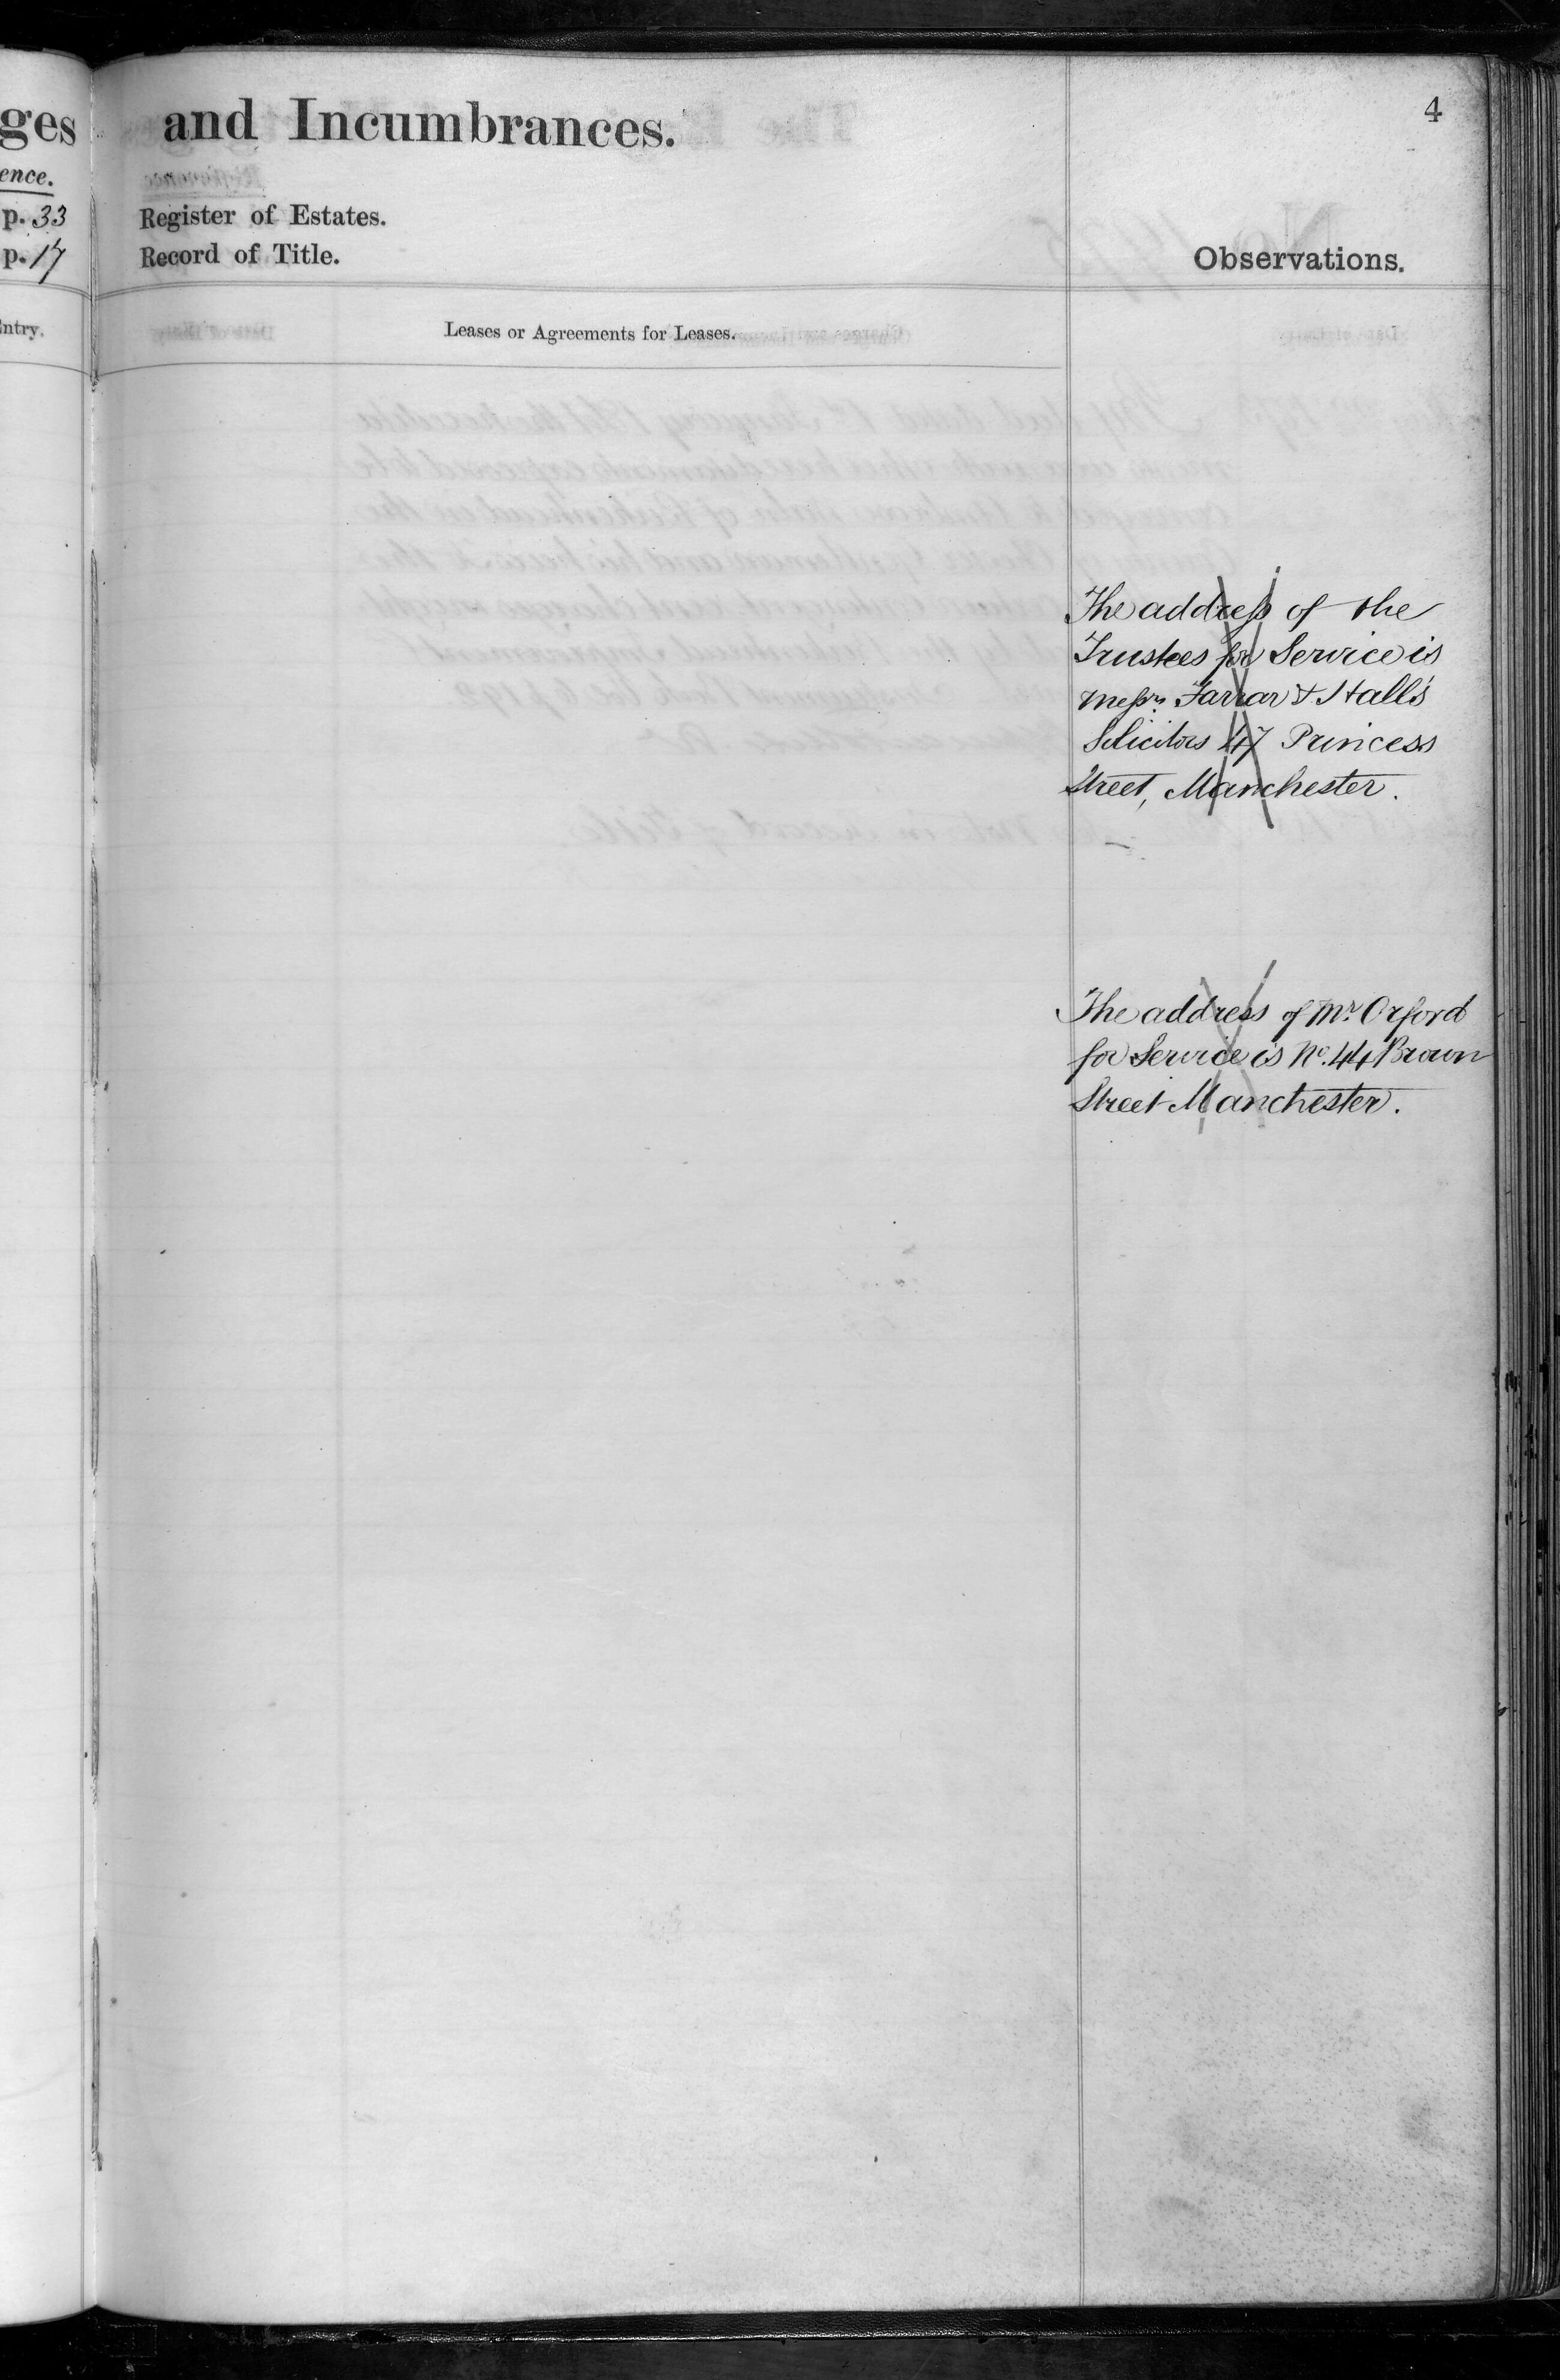 ges
ence.
p. 33
p. 17
Entry.
and Incumbrances.
4
Register of Estates.
Record of Title.
Observations.
Leases or Agreements for Leases.
The address of the
Trustees for Service is
Messrs. Farrar & Hall's
Solicitors 47 Princess
Street, Manchester.
The address of Mr. Orford
for Service is No. 44 Brown
Street Manchester.